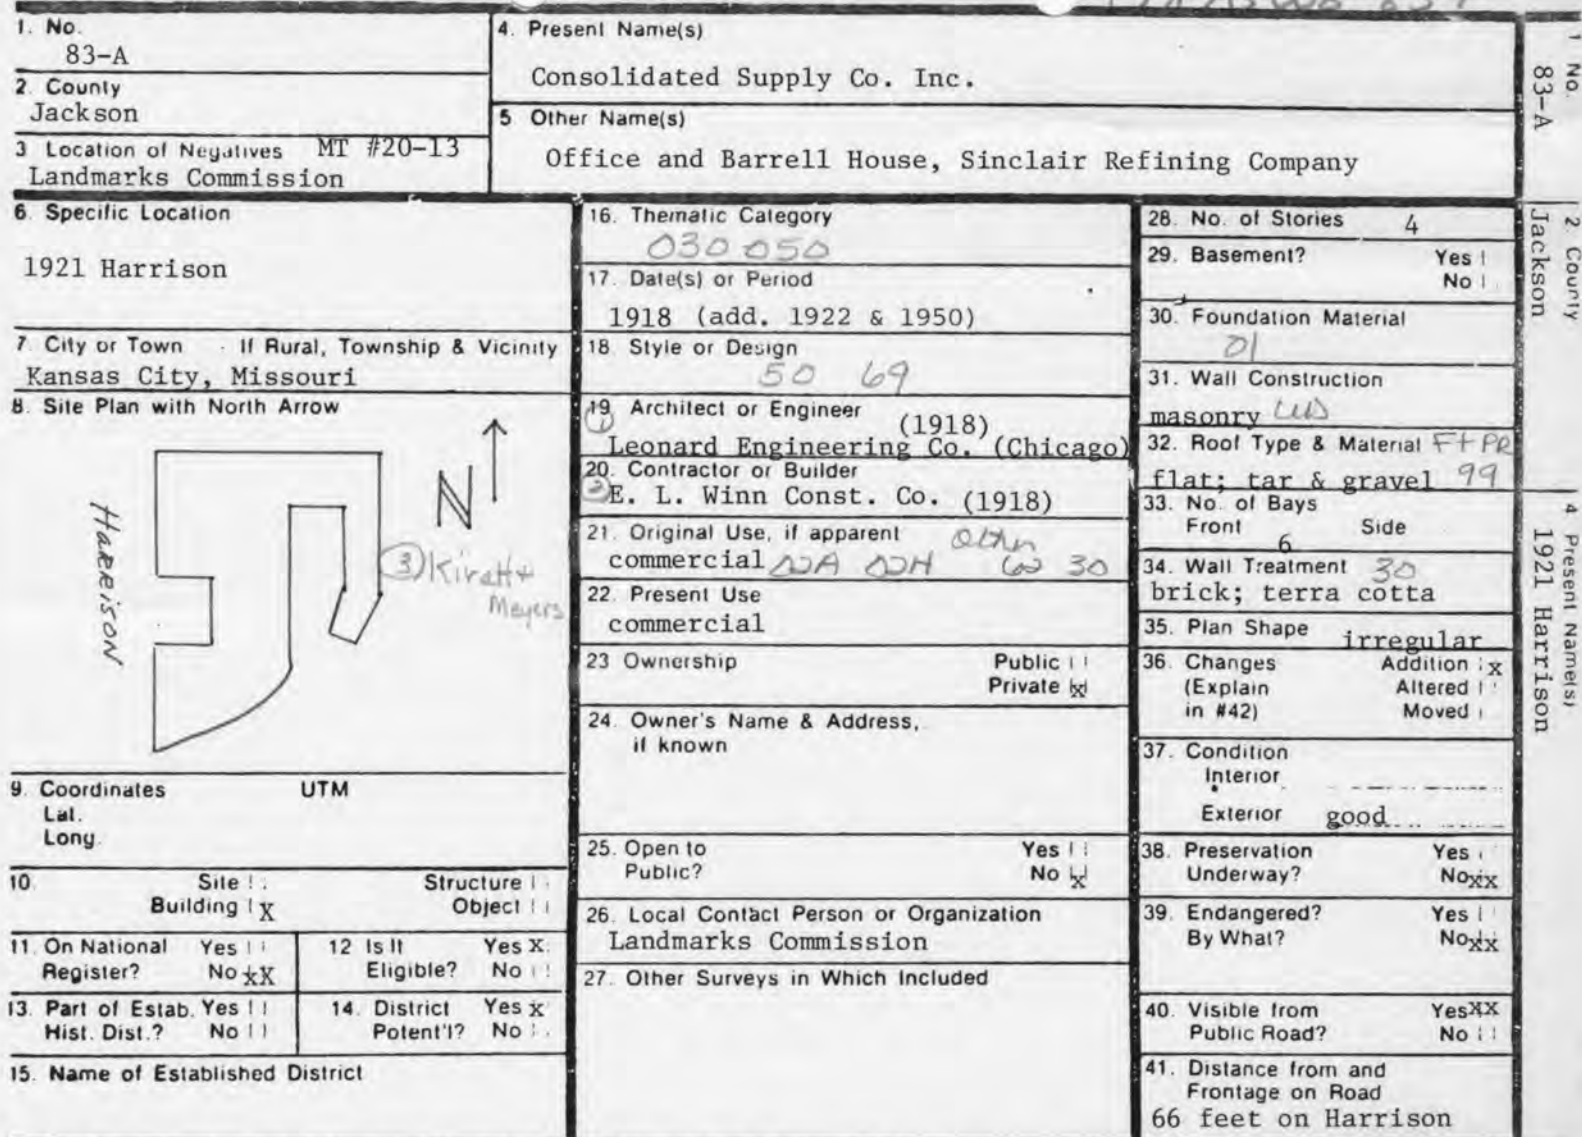 1. No.
83-A
2. County
Jackson
3 Location of Negatives MT #20-13
Landmarks Commission
4. Present Name(s)
Consolidated Supply Co. Inc.
5 Other Name(s)
Office and Barrell House, Sinclair Refining Company
6. Specific Location
1921 Harrison
7. City or Town If Rural, Township & Vicinity
Kansas City, Missouri
8. Site Plan with North Arrow
N
HARRISON
3
Meyers
9. Coordinates UTM
Lat.
Long.
10. Site
Structure
Building X
Object
11. On National Register? Yes
No XX
12 Is It Eligible? Yes X
No
13. Part of Estab. Hist. Dist.? Yes
No
14. District Potent'l? Yes X
No
15. Name of Established District
16. Thematic Category
030 050
17. Date(s) or Period
1918 (add. 1922 & 1950)
18. Style or Design
50 69
19. Architect or Engineer (1918)
1
Leonard Engineering Co. (Chicago)
20. Contractor or Builder
2
E. L. Winn Const. Co. (1918)
21. Original Use, if apparent
Other
commercial 02A 02H 30
22. Present Use
commercial
23 Ownership Public
Private X
24. Owner's Name & Address,
if known
25. Open to Public? Yes
No X
26. Local Contact Person or Organization
Landmarks Commission
27. Other Surveys in Which Included
28. No. of Stories 4
29. Basement? Yes
No
30. Foundation Material
01
31. Wall Construction
masonry
32. Roof Type & Material
flat; tar & gravel 99
33. No. of Bays
Front 6 Side
34. Wall Treatment 30
brick; terra cotta
35. Plan Shape irregular
36. Changes Addition X
(Explain Altered
in #42) Moved
37. Condition
Interior
Exterior good
38. Preservation Underway? Yes
No XX
39. Endangered? Yes
By What? No XX
40. Visible from Public Road? Yes XX
No
41. Distance from and
Frontage on Road
66 feet on Harrison
1 No.
83-A
2. County
Jackson
4 Present Name(s)
1921 Harrison